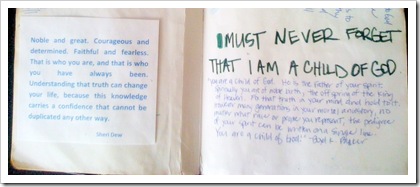 Noble and great. Courageous and
determined. Faithful and fearless.
That is who you are, and that is who
you have always been.
Understanding that truth can change
your life, because this knowledge
carries a confidence that cannot be
duplicated any other way.
Sheri Dew
I MUST NEVER FORGET
THAT I AM A CHILD OF GOD
"You are a child of God. He is the father of your spirit.
Spiritually you are of noble birth, the offspring of the King
of Heaven. Fix that truth in your mind and hold to it.
However many generations in your mortal ancestory, no
matter what race or people you represent, the pedigree
of your spirit can be written on a single line.
You are a child of God!" - Boyd K. Packer